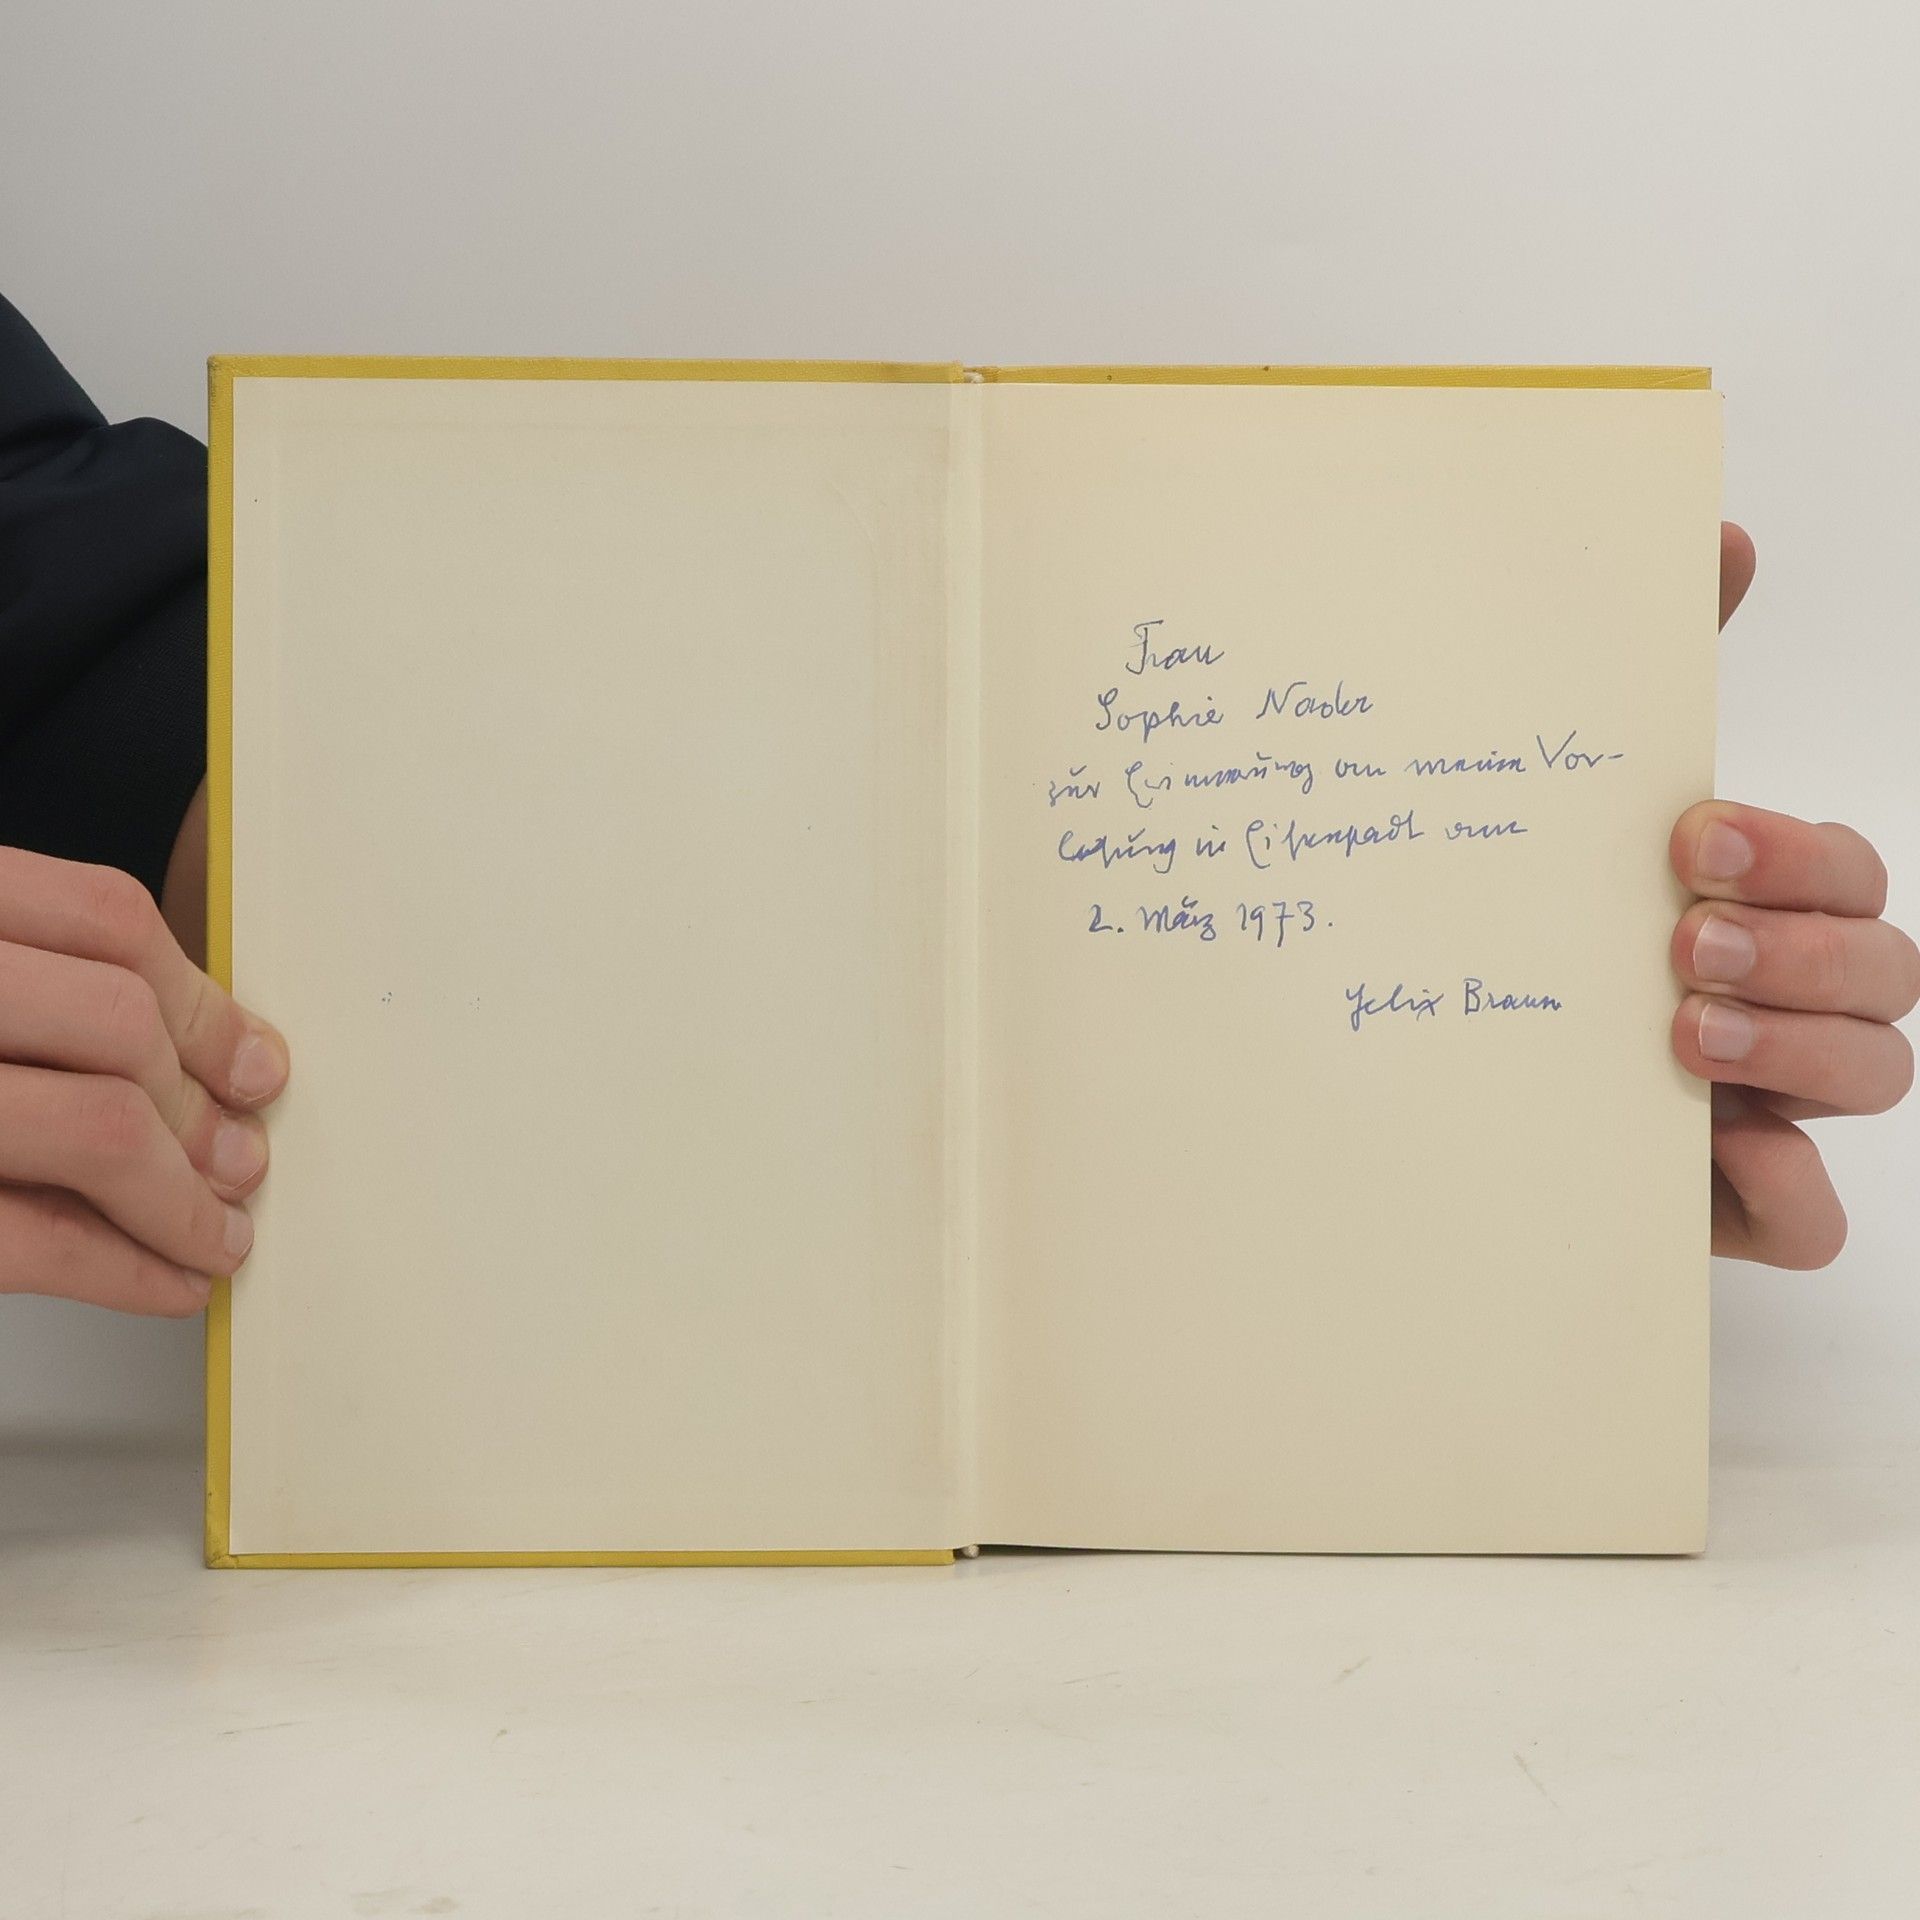 Frau
Sophie Nader
zur Erinnerung an meine Vor-
lesung in Eisenstadt am
2. März 1973.
Felix Braun